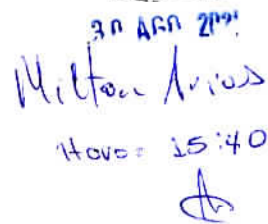 30 AGO
Milton Arias
Hora: 15:40